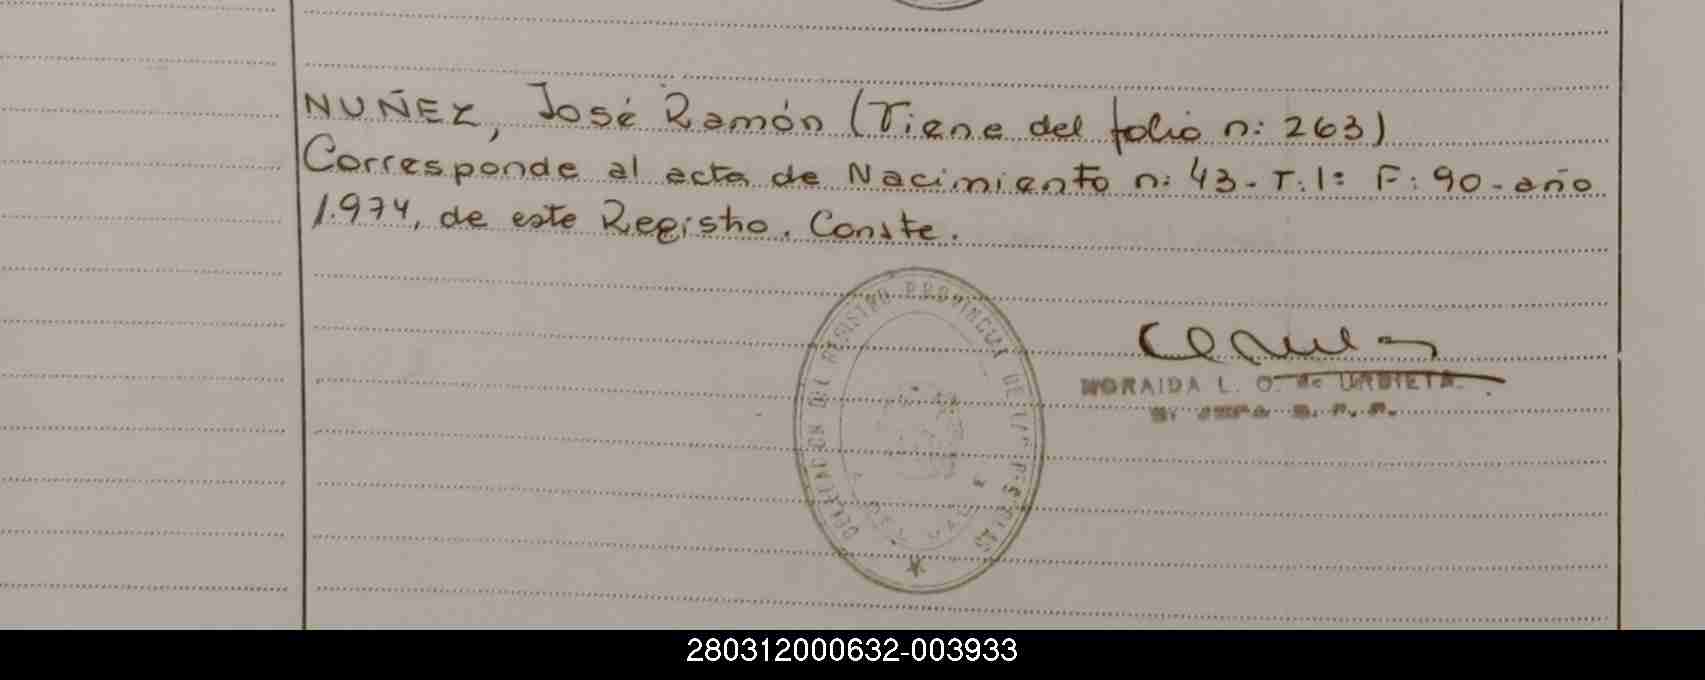 NUÑEZ, José Ramón (Viene del folio n: 263)
Corresponde al acta de Nacimiento n: 43- T: 1: F: 90- año
1.974, de este Registro. Conste.
DELEGACION DEL REGISTRO PROVINCIAL DE LAS PERSONAS
MORAIDA L. O. de URBIETA
280312000632-003933